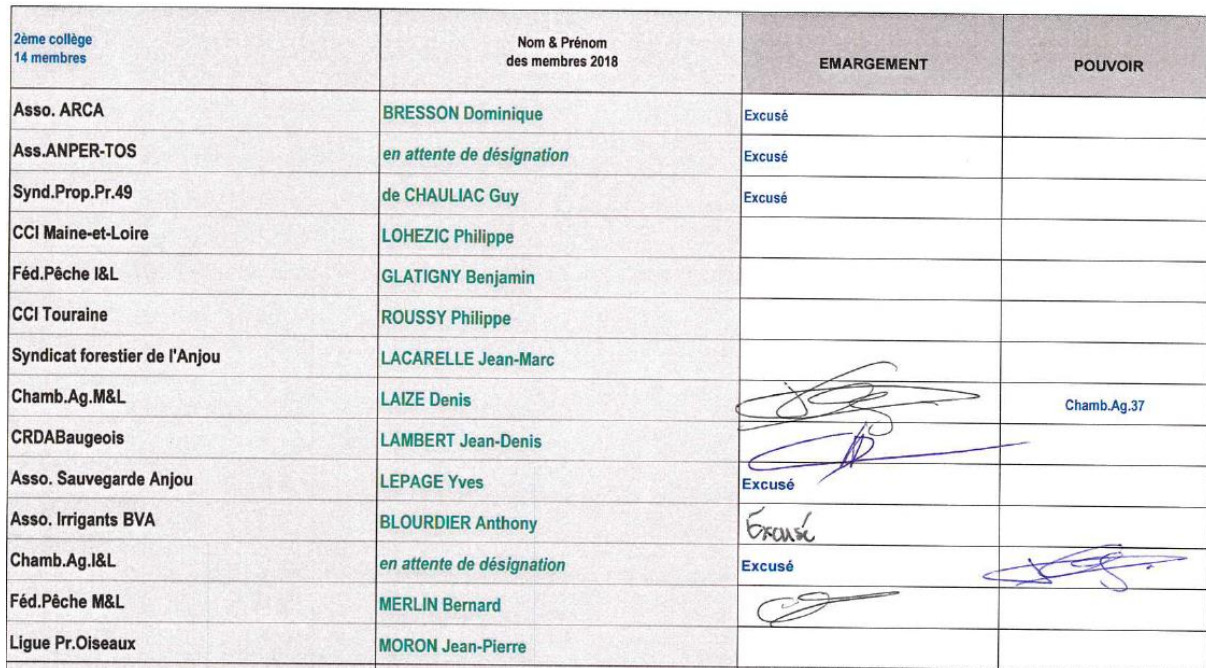 2ème collège
14 membres
Nom & Prénom
des membres 2018
EMARGEMENT
POUVOIR
Asso. ARCA BRESSON Dominique Excusé
Ass.ANPER-TOS en attente de désignation Excusé
Synd.Prop.Pr.49 de CHAULIAC Guy Excusé
CCI Maine-et-Loire LOHEZIC Philippe
Féd.Pêche I&L GLATIGNY Benjamin
CCI Touraine ROUSSY Philippe
Syndicat forestier de l'Anjou LACARELLE Jean-Marc
Chamb.Ag.M&L LAIZE Denis Chamb.Ag.37
CRDABaugeois LAMBERT Jean-Denis
Asso. Sauvegarde Anjou LEPAGE Yves Excusé
Asso. Irrigants BVA BLOURDIER Anthony Excusé
Chamb.Ag.I&L en attente de désignation Excusé
Féd.Pêche M&L MERLIN Bernard
Ligue Pr.Oiseaux MORON Jean-Pierre